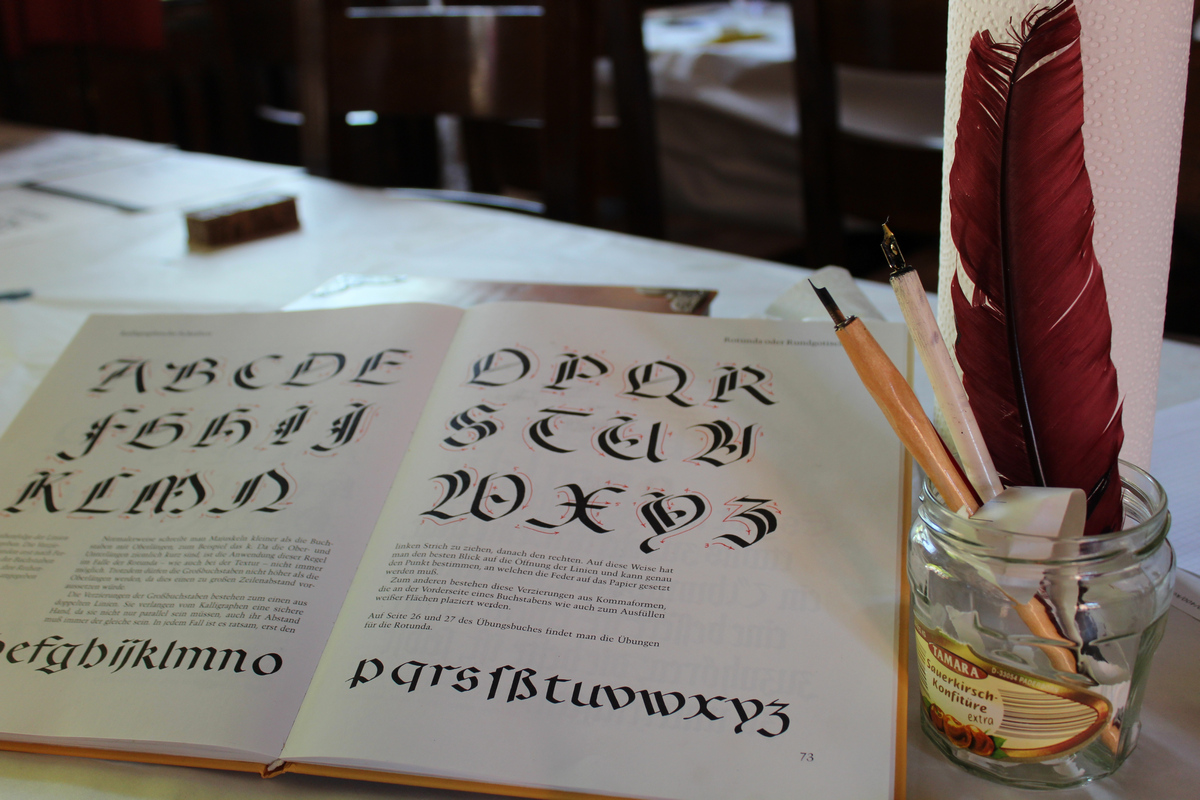 A B C D E
F G H I J
K L M N
Normalerweise schreibt man Minuskeln kleiner als die Buch-
staben mit Oberlängen, zum Beispiel das k. Da die Ober- und
Unterlängen jedoch kurz sind, ist die Anwendung dieser Regel
im Falle der Rotunda – wie auch bei der Textur – nicht immer
möglich. Trotzdem dürfen die Großbuchstaben nicht höher als die
Oberlängen werden, da dies einen zu großen Zeilenabstand vor-
aussetzen würde.
Die Verzierungen der Großbuchstaben bestehen zum einen aus
doppelten Linien. Sie verlangen vom Kalligraphen eine sichere
Hand, da sie nicht nur parallel sein müssen, auch ihr Abstand
muß immer der gleiche sein. In jedem Fall ist es ratsam, erst den
efghijklmno
Rotunda oder Rundgotisch
O P Q R
S T U V
W X Y Z
linken Strich zu ziehen, danach den rechten. Auf diese Weise hat
man den besten Blick auf die Öffnung der Linien und kann genau
den Punkt bestimmen, an welchen die Feder auf das Papier gesetzt
werden muß.
Zum anderen bestehen diese Verzierungen aus Kommaformen,
die an der Vorderseite eines Buchstabens wie auch zum Ausfüllen
weißer Flächen plaziert werden.
Auf Seite 26 und 27 des Übungsbuches findet man die Übungen
für die Rotunda.
pqrsſßtuvwxyz
73
TAMARA
Sauerkirsch-
Konfitüre
extra